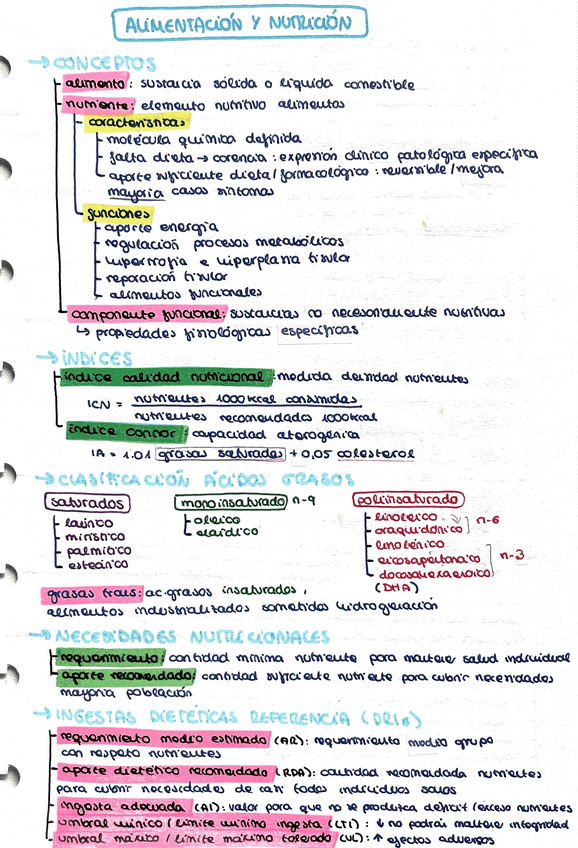 ALIMENTACIÓN Y NUTRICIÓN
→ CONCEPTOS
alimento: sustancia sólida o líquida comestible
nutriente: elemento nutritivo alimentos
características
molécula química definida
falta dieta → carencia: expresión clínico patológica específica
aporte suficiente dieta/farmacológico: reversible/mejora
mayoría casos síntomas
funciones
aporte energía
regulación procesos metabólicos
hipertrofia e hiperplasia tisular
reparación tisular
alimentos funcionales
componente funcional: sustancias no necesariamente nutritivas
↳ propiedades fisiológicas específicas
→ ÍNDICES
índice calidad nutricional: medida densidad nutrientes
ICN = nutrientes 1000 kcal consumidas
nutrientes recomendados 1000 kcal
índice connor: capacidad aterogénica
IA = 1.01 grasas saturadas + 0,05 colesterol
→ CLASIFICACIÓN ÁCIDOS GRASOS
saturados monoinsaturado n-9 poliinsaturado
laúrico oleico linoleico
mirístico elaídico araquidónico n-6
palmítico linolénico
esteárico eicosapentanoico n-3
docosahexaenoico
(DHA)
grasas trans: ac. grasos insaturados,
alimentos industrializados sometidos hidrogenación
→ NECESIDADES NUTRICIONALES
requerimiento: cantidad mínima nutriente para mantener salud individual
aporte recomendado: cantidad suficiente nutriente para cubrir necesidades
mayoría población
→ INGESTAS DIETÉTICAS REFERENCIA (DRIs)
requerimiento medio estimado (AR): requerimiento medio grupo
con respeto nutrientes
aporte dietético recomendado (RDA): cantidad recomendada nutrientes
para cubrir necesidades de casi todos individuos sanos
ingesta adecuada (AI): valor para que no se produzca déficit/exceso nutrientes
umbral mínico/límite mínimo ingesta (LTI): ↓ no podrás mantener integridad
umbral máximo/límite máximo tolerado (UL): ↑ efectos adversos